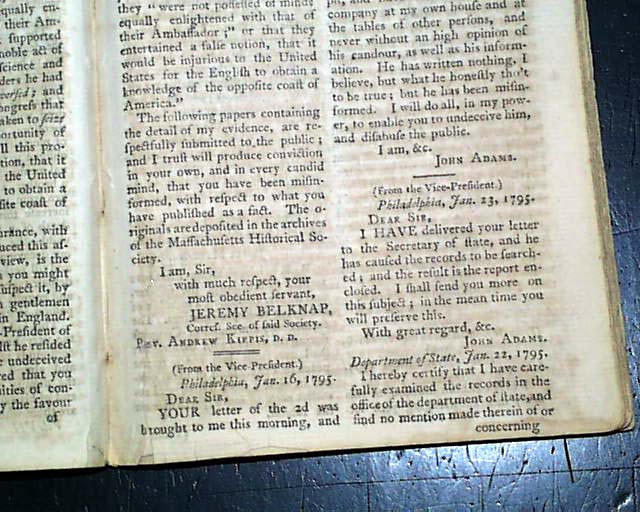 qually en-
supported
noble act of
ſcience and
ders he had
verſed; and
ongreſs that
aken to ſeize
ortunity of
ll this pro-
tion, that it
the United
to obtain a
ſite coaſt of
with
uced this aſ-
view, is the
you might
uſpect it, by
gentlemen
in England.
-Preſident of
lſt he reſided
undeceived
red that you
ities of con-
y the favour
of
they "were not poſſeſſed of minds
equally enlightened with that of
their Ambaſſador;" or that they
entertained a falſe notion, that it
would be injurious to the United
States for the Engliſh to obtain a
knowledge of the oppoſite coaſt of
America."
The following papers containing
the detail of my evidence, are re-
ſpectfully ſubmitted to the public;
and I truſt will produce conviction
in your own, and in every candid
mind, that you have been miſin-
formed, with reſpect to what you
have publiſhed as a fact. The o-
riginals are depoſited in the archives
of the Maſſachuſetts Hiſtorical So-
ciety.
I am, Sir,
with much reſpect, your
moſt obedient ſervant,
JEREMY BELKNAP,
Correſ. Sec. of ſaid Society.
Rev. ANDREW KIPPIS, D. D.
(From the Vice-Preſident.)
Philadelphia, Jan. 16, 1795.
DEAR SIR,
YOUR letter of the 2d was
brought to me this morning, and
company at my own houſe and at
the tables of other perſons, and
never without an high opinion of
his candour, as well as his inform-
ation. He has written nothing, I
believe, but what he honeſtly tho't
to be true; but he has been miſin-
formed. I will do all, in my pow-
er, to enable you to undeceive him,
and diſabuſe the public.
I am, &c.
JOHN ADAMS.
(From the Vice-Preſident.)
Philadelphia, Jan. 23, 1795.
DEAR SIR,
I HAVE delivered your letter
to the Secretary of ſtate, and he
has cauſed the records to be ſearch-
ed; and the reſult is the report en-
cloſed. I ſhall ſend you more on
this ſubject; in the mean time you
will preſerve this.
With great regard, &c.
JOHN ADAMS.
Department of State, Jan. 22, 1795.
I hereby certify that I have care-
fully examined the records in the
office of the department of ſtate, and
find no mention made therein of or
concerning